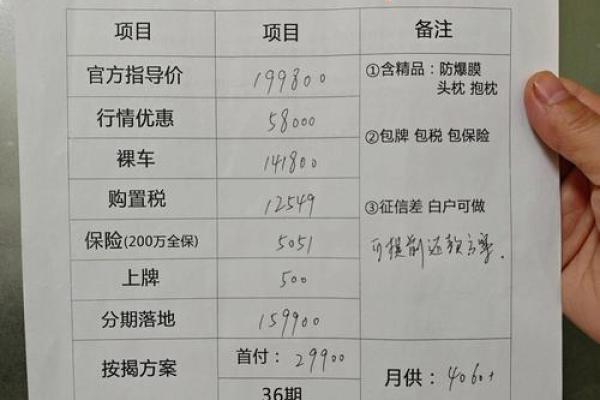 项目 项目 备注
官方指导价 199800 ①含精品：防爆膜
头枕 抱枕
行情优惠 58000
②包牌 包税 包保险
裸车 141800
购置税 12549 ③征信差 白户可做
保险(200万全保) 5051 可提前还款方案.
上牌 500
分期落地 159900
按揭方案 首付：29900 月供：4060+
36期